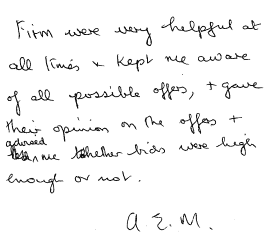 Firm were very helpful at
all times & kept me aware
of all possible offers, + gave
their opinion on the offers +
advised me whether bids were high
enough or not.
A. E. M.